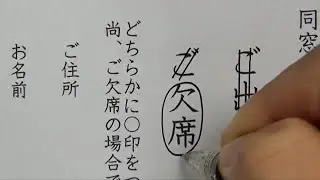 同窓
ご出
ご欠席
どちらかに○印をつ
尚、ご欠席の場合で
ご住所
お名前